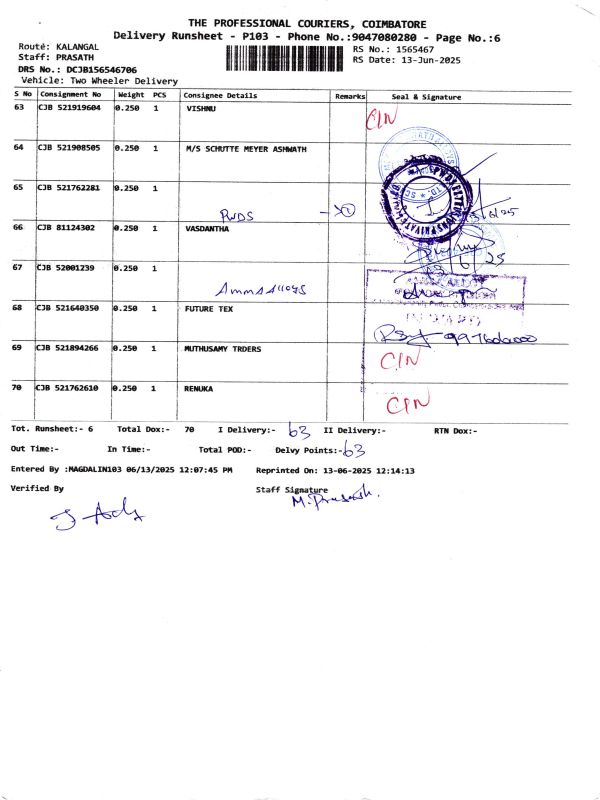 THE PROFESSIONAL COURIERS, COIMBATORE
Delivery Runsheet - P103 - Phone No.:9047080280 - Page No.:6
Route: KALANGAL
RS No.: 1565467
Staff: PRASATH
RS Date: 13-Jun-2025
DRS No.: DCJB156546706
Vehicle: Two Wheeler Delivery
S No Consignment No Weight PCS Consignee Details Remarks Seal & Signature
63 CJB 521919604 0.250 1 VISHNU CIN
64 CJB 521908505 0.250 1 M/S SCHUTTE MEYER ASHWATH
65 CJB 521762281 0.250 1
PWDS
66 CJB 81124302 0.250 1 VASDANTHA
67 CJB 52001239 0.250 1
68 CJB 521640350 0.250 1 FUTURE TEX
69 CJB 521894266 0.250 1 MUTHUSAMY TRDERS CIN
70 CJB 521762610 0.250 1 RENUKA CIN
Tot. Runsheet:- 6 Total Dox:- 70 I Delivery:- 63 II Delivery:- RTN Dox:-
Out Time:- In Time:- Total POD:- Delvy Points:- 63
Entered By :MAGDALIN103 06/13/2025 12:07:45 PM Reprinted On: 13-06-2025 12:14:13
Verified By Staff Signature
M. Prasath.